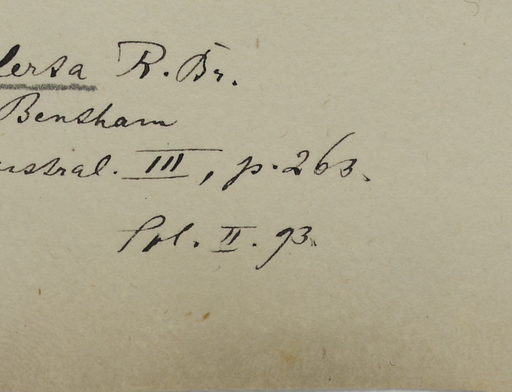 lersa R. Br.
Bentham
ustral. III, p. 263.
Spl. II. 93.